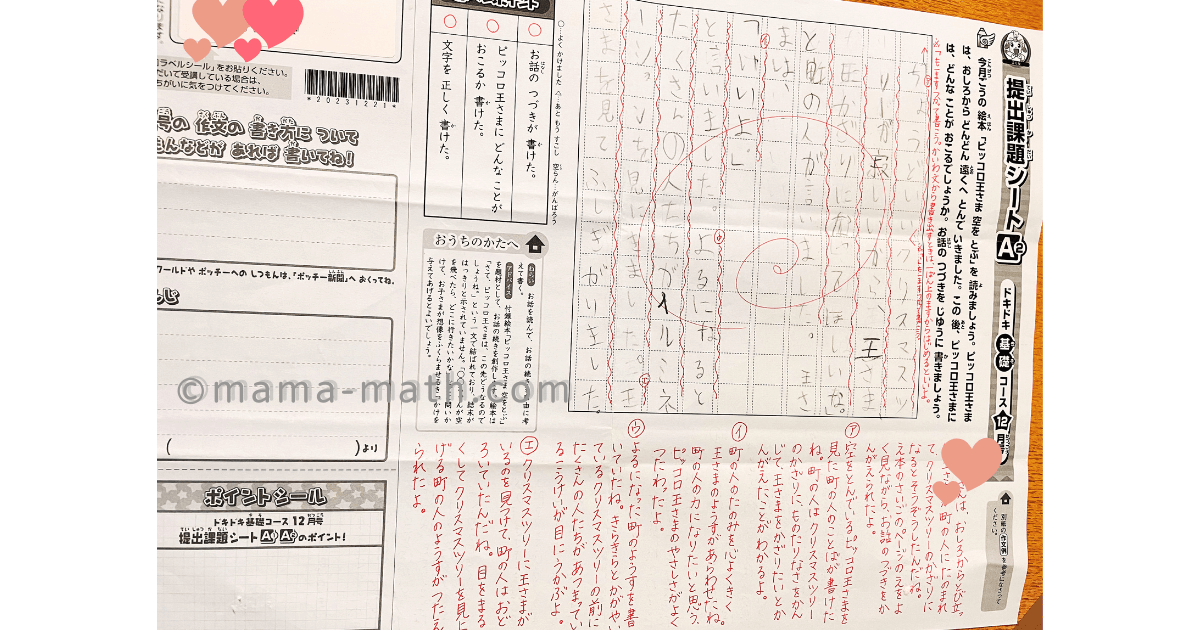 提出課題シート A2
ドキドキ 基礎 コース 12月号
今月ごうの 絵本「ピッコロ王さま 空を とぶ」を 読みましょう。ピッコロ王さま
は、おしろから どんどん 遠くへ とんで いきました。この 後、ピッコロ王さまに
は、どんな ことが おこるでしょうか。お話の つづきを じゆうに 書きましょう。
別紙の「作文例」を 参考になさって
ください。
リーが寂しいから、王さま
と町の人が言いま
まは、
「いいよ」
と言いました。よるになると
たくさんの人たちがイルミネ
ーションを見にきました。王
さまを見て ふしぎがりました。
○…よく かけました △…あと もう すこし 空らん…がんばろう
お話の つづきが 書けた。
ピッコロ王さまに どんな ことが
おこるか 書けた。
文字を 正しく 書けた。
おうちのかたへ
ねらい お話を読んで、お話の続きを自由に考
えて書く。
アドバイス 付録絵本「ピッコロ王さま 空をとぶ」
を題材として、お話の続きを創作します。絵本は
「さて、ピッコロ王さまは、この先どうなるので
しょうね。」という一文で結ばれており、結末が
はっきりと示されていません。
与えてあげるとよいでしょう。
て、クリスマスツリーのかざりに
なるとそうぞうしたんだね。
え本のさいごのページのえをよ
く見ながら、お話のつづきをか
んがえられたよ。
ア
空をとんでいるピッコロ王さまを
見た町の人のことばが書けた
ね。町の人はクリスマスツリー
のかざりに、ものたりなさをかん
じて、王さまをかざりたいとか
んがえたことがわかるよ。
イ
町の人のたのみを心よくきく
王さまのようすがあらわせたね。
町の人の力になりたいと思う、
ピッコロ王さまのやさしさがよく
つたわったよ。
ウ
よるになった町のようすを書
いていたね。きらきらとかがやい
ているクリスマスツリーの前に
たくさんの人たちがあつまってい
るこうけいが目にうかぶよ。
エ
クリスマスツリーに王さまが
いるのを見つけて、町の人はおど
ろいていたんだね。目をまる
くしてクリスマスツリーを見上
げる町の人のようすがつたえ
られたよ。
ラベルシール」をお貼りください。
だいて受講している場合は、
ちがいに気をつけてください。
*20231221*
号の 作文の 書き方に ついて
もんなどが あれば 書いてね!
ワールドや ポッチーへの しつもんは、「ポッチー新聞」へ おくってね。
( )より
ポイントシール
ドキドキ基礎コース 12月号
提出課題シート A1 A2 のポイント!
©mama-math.com